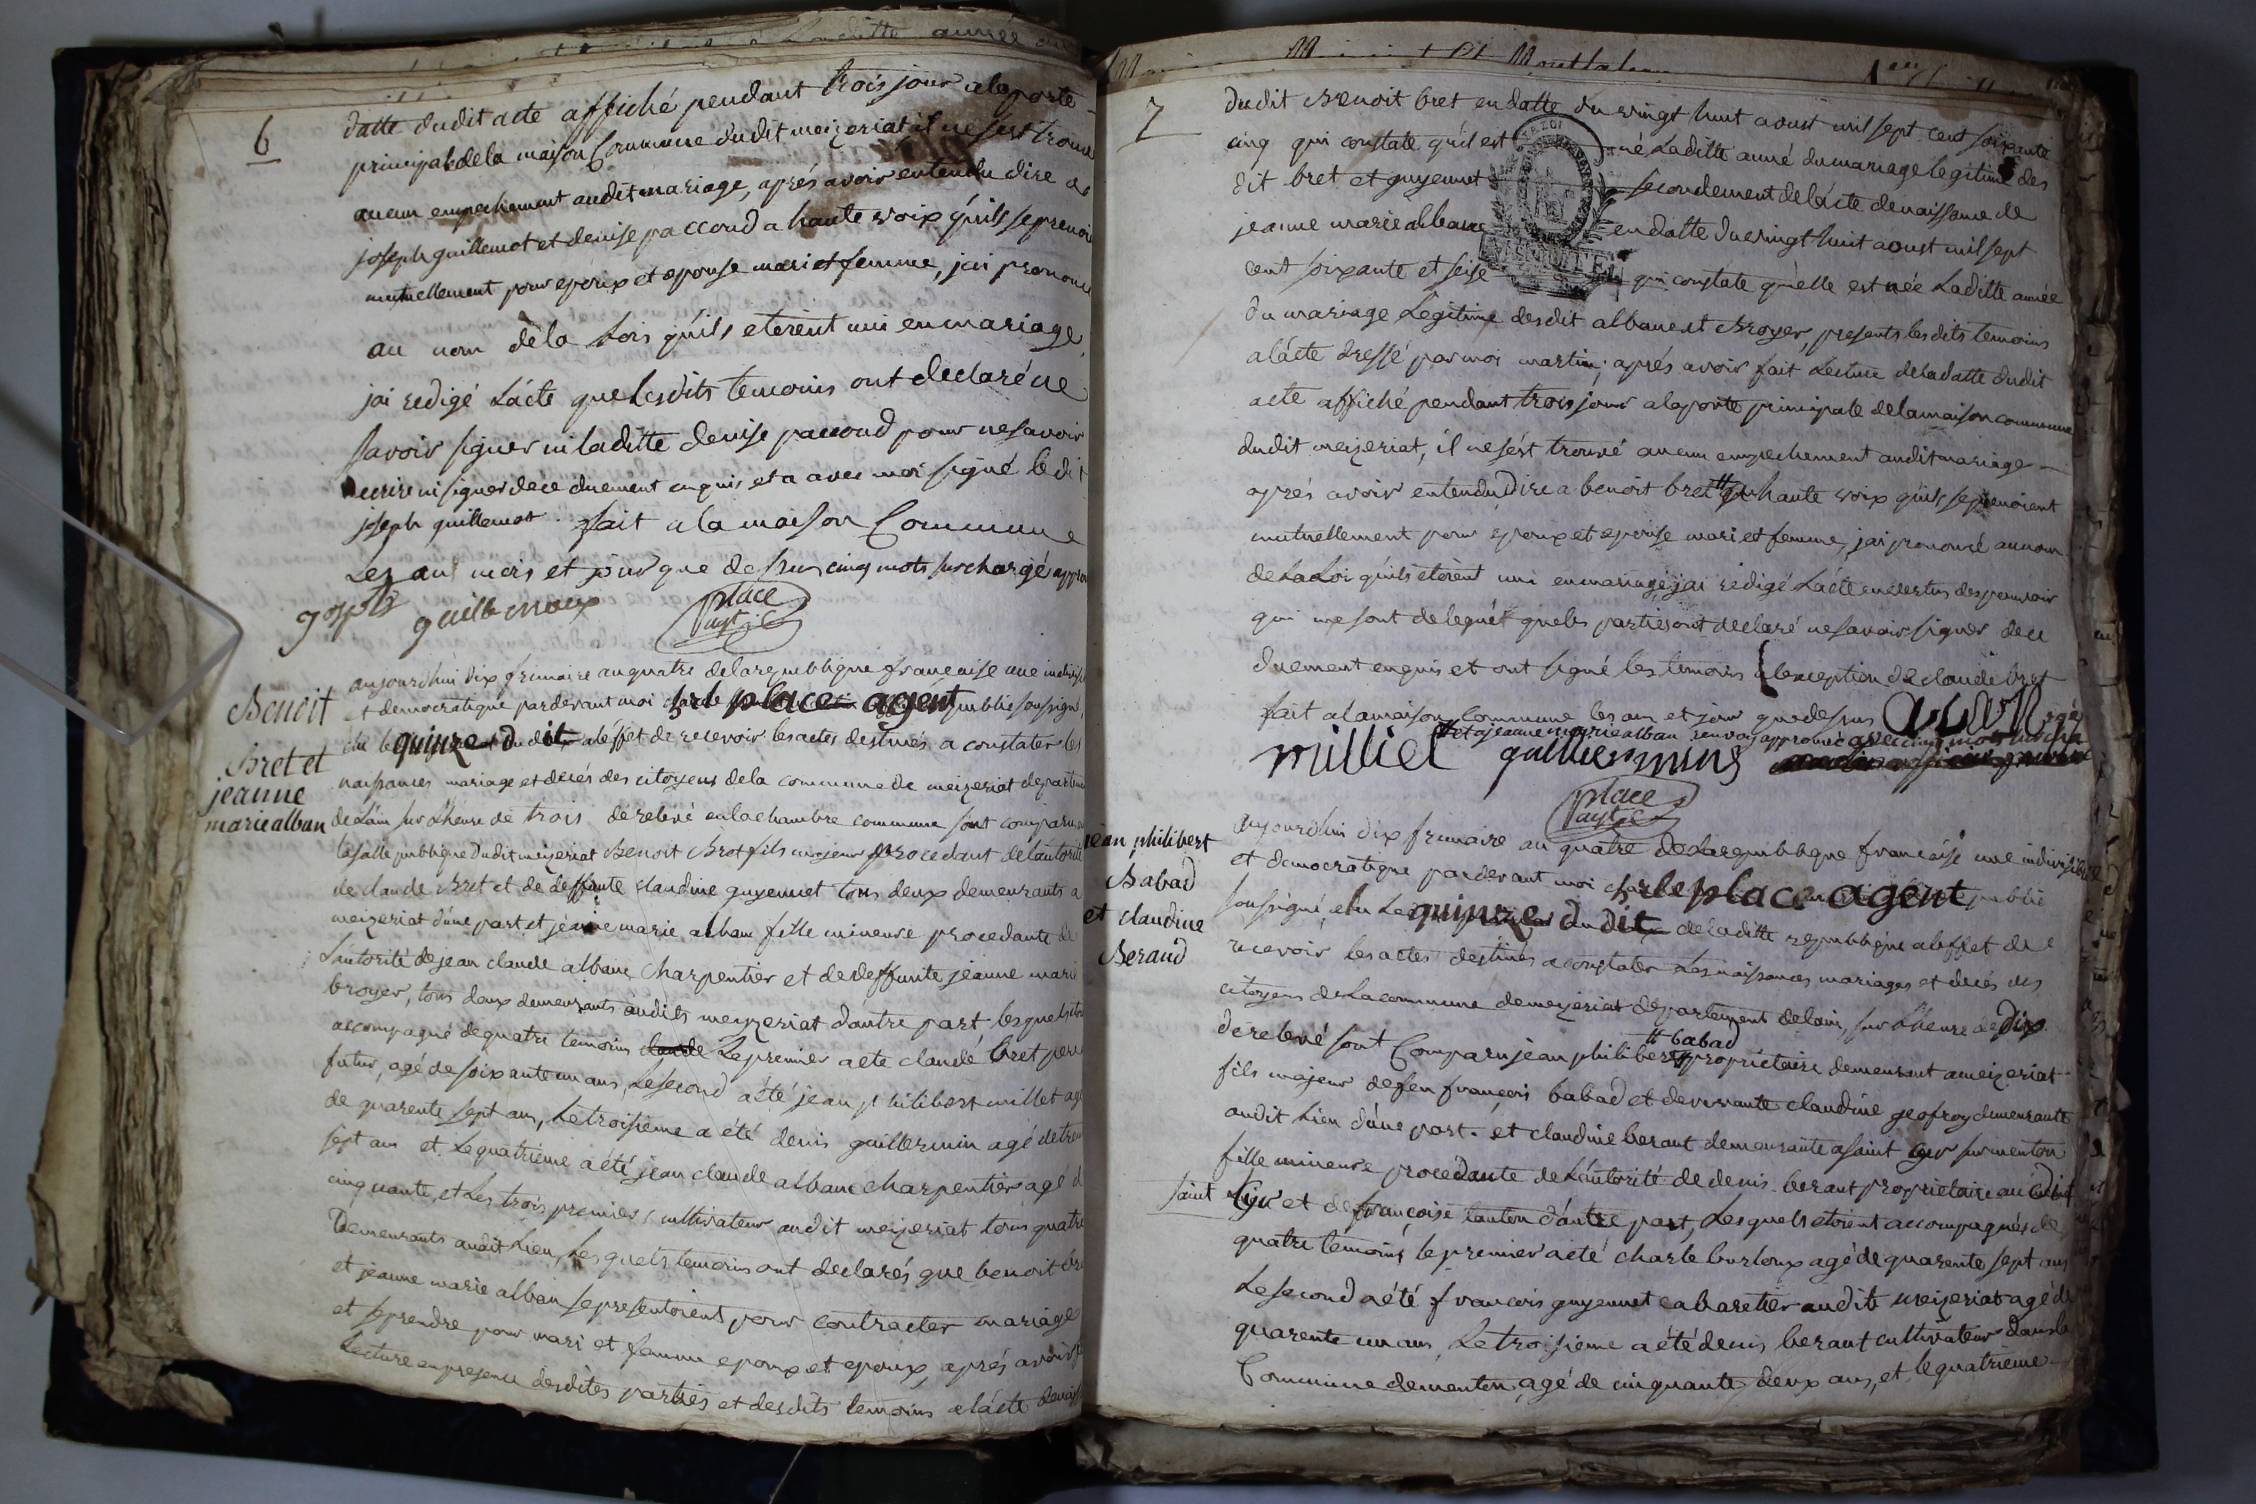 6
datte dudit acte affiché pendant trois jour a la porte
principale de la maison Commune dudit meizeriat il ne s'est trouvé
aucun empechement audit mariage, aprés avoir entendu dire a
joseph guillemot et denise paccoud a haute voix qúils se prenoi
mutuellement pour epoux et epouse mari et femme, jai prononcé
au nom de la Lois qúils etoient uni en mariage,
jai redigé L'acte que Lesdits temoins ont declaré ne
savoir signer ni laditte denise paccoud pour ne savoir
ecrire ni signer de ce duement enquis et a avec moi signé le dit
joseph guillemot. fait a la maison Commune
Les an mois et jour que dessus cinq mots surchargé appro
joseph guillemoux place
Benoit
Bret et
jeanne
marie alban
aujourdhui dix frimaire an quatre de la republique francaise une indivisi
et democratique pardevant moi charle place agent public soussigné,
élu le quinze dudit a léffet de recevoir les actes destinés a constater les
naissances mariage et decés des citoyens de la commune de meizeriat departem
de Láin sur Lheure de trois de relevé en la chambre commune sont comparu
la salle publique dudit meizeriat Benoit Bret fils majeur procedant de láutorité
de claude Bret et de deffunte claudine guyennet tous deux demeurants a
meizeriat dúne part et jeanne marie alban fille mineure procedante de
Láutorité de jean claude albanc charpentier et de deffunte jeanne marie
broyer, tous deux demeurants audits meizeriat dáutre part, lesquels étoi
accompagné de quatre temoins claude Le premier a ete claude bret pere
futur, agé de soixante un ans, Le second a été jean philibert millet agé
de quarente sept ans, Le troisieme a été denis guillermin agé de tren
sept ans et Le quatrieme a été jean claude albanc charpentier agé d
cinquante, et Les trois premiers cultivateur audit meizeriat tous quatre
Demeurants audit Lieu, Lesquels temoins ont declarés que benoit bre
et jeanne marie alban se presentoient pour contracter mariage
et se prendre pour mari et femme epoux et epoux, aprés avoir f
Lecture en presence desdites parties et desdits temoins a lácte denais
7
dudit Benoit bret en datte du vingt huit aoust mil sept cent soixante
cinq qui constate qúil est né Laditte anné du mariage legitime des
dit bret et guyennet secondement de lácte de naissance de
jeanne marie albanc en datte du vingt huit aoust mil sept
cent soixante et seise qui constate qúelle est née Laditte année
du mariage Legitime desdit albanc et Broyer, presents lesdits temoins
a lácte dressé par moi martin; aprés avoir fait Lecture de la datte dudit
acte affiché pendant trois jour a la porte principale de la maison commune
dudit meizeriat, il ne sést trouvé aucun empechement audit mariage
aprés avoir entendu dire a benoit bret haute voix qúils se prenoient
mutuellement pour epoux et epouse mari et femme, jai prononcé au nom
de La Loi qúils etoient uni en mariage, jai redigé Lácte en vertus des pouvoir
qui me sont delegués que les parties ont declaré ne savoir signer de ce
duement enquis et ont signé les temoins a lexception de claude bret
fait a la maison commune les an et jour que dessus
et a jeanne marie alban renvoy approuvé avec cinq mots surcha
milliet guillermins
place
jean philibert
Babad
et claudine
Beraud
aujourdhui dix frimaire an quatre de La republique francaise une indivisible
et democratique pardevant moi charle place agent public
soussigné, elu Le quinze dudit de Laditte republique a leffet de
recevoir Les actes destinés a constater Les naissances mariages et decés des
citoyens de La commune de meizeriat departement de lain, sur Lheure de Dix
de relevé sont Comparu jean philibert babad proprietaire demeurant a meizeriat
fils majeur de feu françois babad et de vivante claudine geofroy demeurante
audit Lieu dúne part. et claudine beraut demeurante a saint Cyr sur menton
fille mineure procedante de Láutorité de denis beraut proprietaire audit
saint Cyr et de françoise tanton dáutre part, Lesquels etoient accompagnés de
quatre témoins, le premier a eté charle burtoux agé de quarente sept ans
Le second a été francois guyennet cabaretier audite meizeriat agé de
quarente un ans, Le troisieme a été denis beraut cultivateur dans la
Commune de menton, agé de cinquante deux ans, et le quatrieme